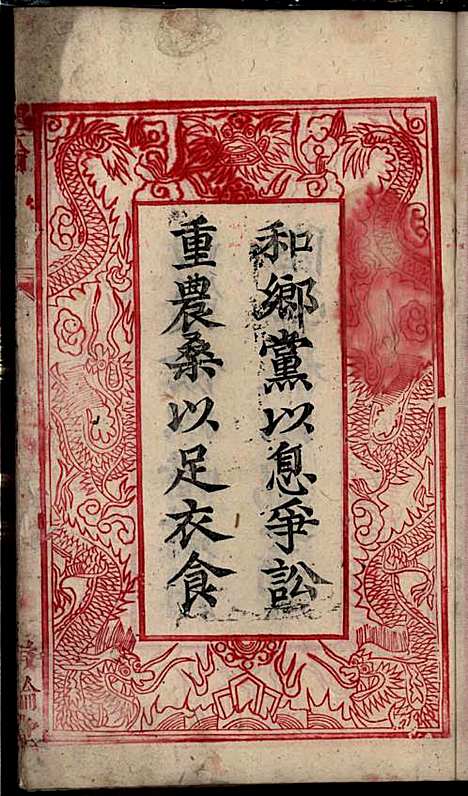 和鄉黨以息爭訟
重農桑以足衣食